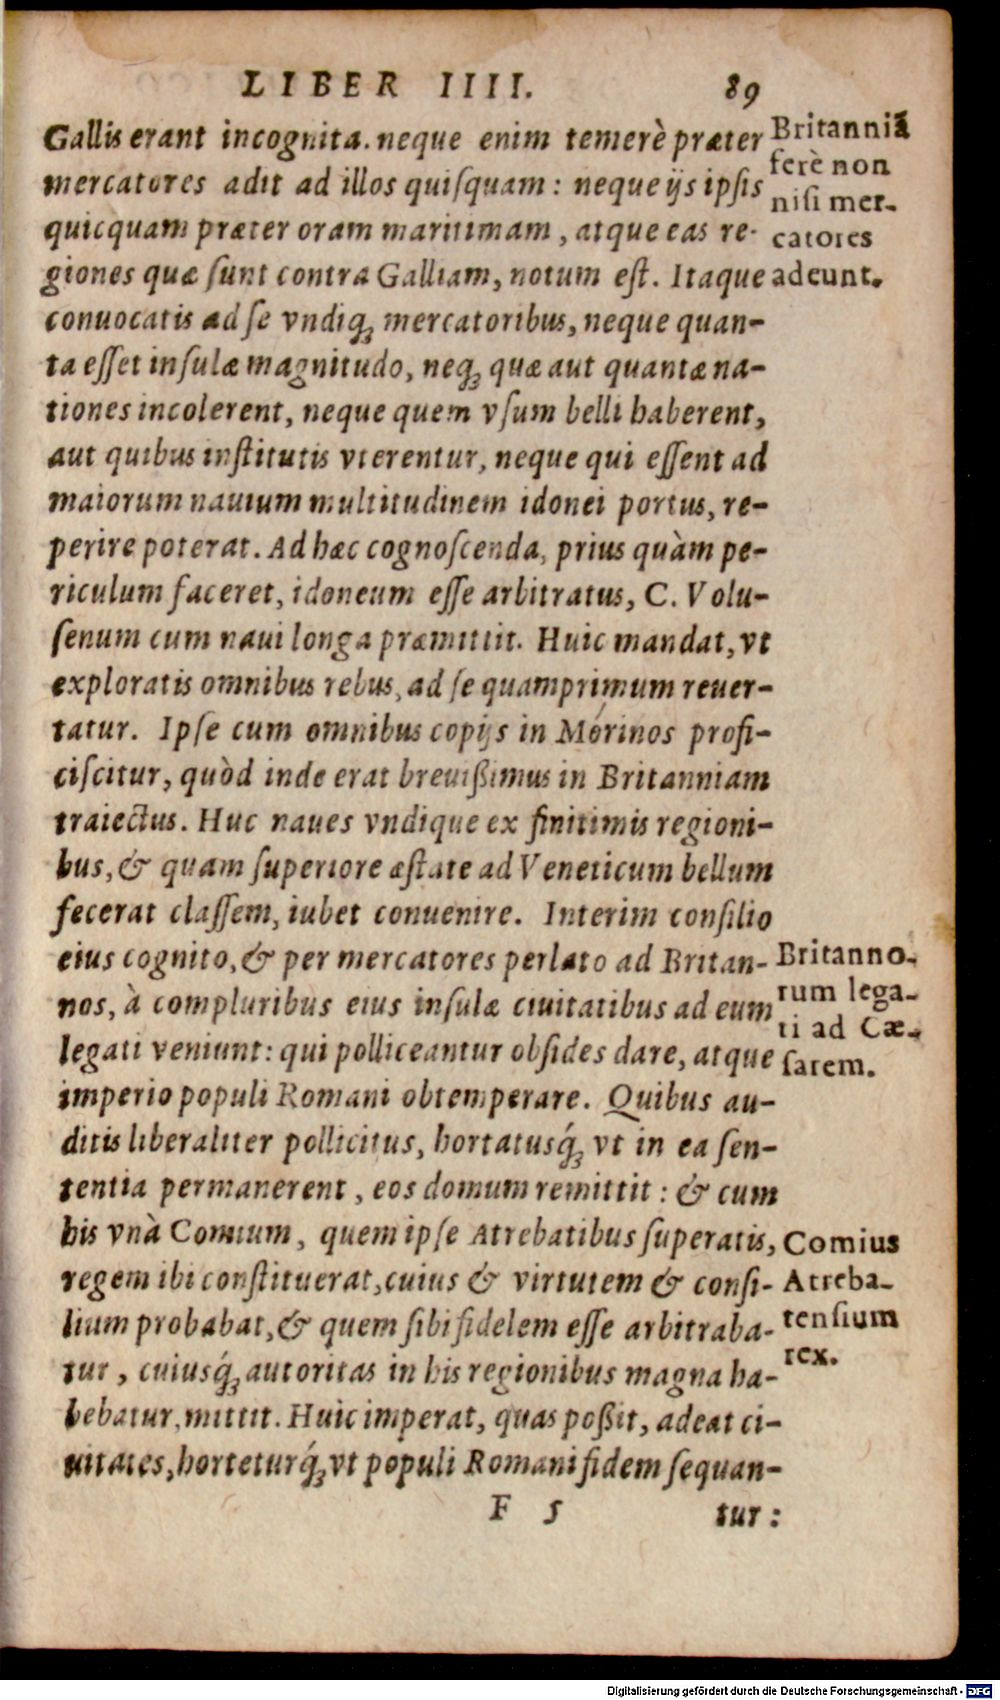 LIBER IIII. 89
Gallis erant incognita. neque enim temerè præter
mercatores adit ad illos quiſquam: neque ijs ipſis
quicquam præter oram maritimam, atque eas re-
giones quæ ſunt contra Galliam, notum eſt. Itaque
conuocatis ad ſe vndiq; mercatoribus, neque quan-
ta eſſet inſulæ magnitudo, neq; quæ aut quantæ na-
tiones incolerent, neque quem vſum belli haberent,
aut quibus inſtitutis vterentur, neque qui eſſent ad
maiorum nauium multitudinem idonei portus, re-
perire poterat. Ad hæc cognoſcenda, prius quàm pe-
riculum faceret, idoneum eſſe arbitratus, C. Volu-
ſenum cum naui longa præmittit. Huic mandat, vt
exploratis omnibus rebus, ad ſe quamprimum reuer-
tatur. Ipſe cum omnibus copijs in Mórinos profi-
ciſcitur, quòd inde erat breuißimus in Britanniam
traiectus. Huc naues vndique ex finitimis regioni-
bus, & quam ſuperiore æſtate ad Veneticum bellum
fecerat claſſem, iubet conuenire. Interim conſilio
eius cognito, & per mercatores perlato ad Britan-
nos, à compluribus eius inſulæ ciuitatibus ad eum
legati veniunt: qui polliceantur obſides dare, atque
imperio populi Romani obtemperare. Quibus au-
ditis liberaliter pollicitus, hortatusq́; vt in ea ſen-
tentia permanerent, eos domum remittit: & cum
his vnà Comium, quem ipſe Atrebatibus ſuperatis,
regem ibi conſtituerat, cuius & virtutem & conſi-
lium probabat, & quem ſibi fidelem eſſe arbitraba-
tur, cuiusq́; autoritas in his regionibus magna ha-
bebatur, mittit. Huic imperat, quas poßit, adeat ci-
uitates, horteturq́; vt populi Romani fidem ſequan-
F 5 tur:
Britanniã
ferè non
niſi mer-
catores
adeunt.
Britanno-
rum lega-
ti ad Cæ-
ſarem.
Comius
Atreba-
tenſium
rex.
Digitalisierung gefördert durch die Deutsche Forschungsgemeinschaft - DFG